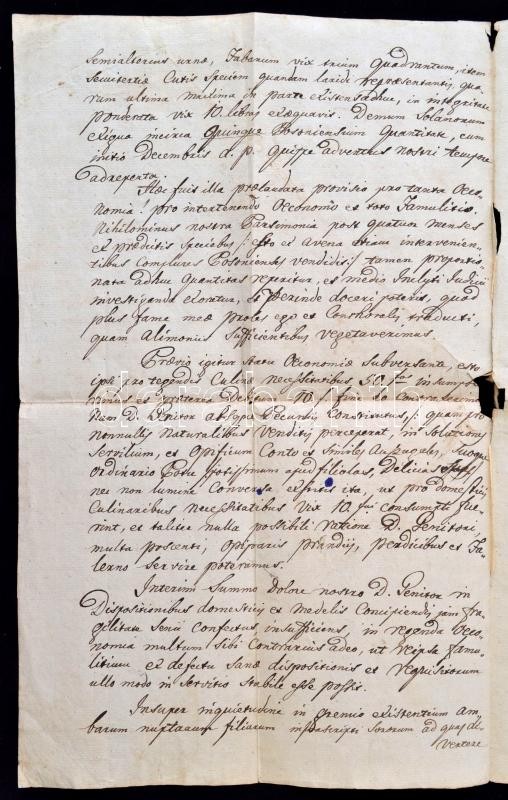 Semialterius urnæ, Fabarum vix trium Quadrantum, item
Sesvitertiæ Cutis Speciem quandam laridi repræsentantis, qua
rum ultima maxima in parte existens adhuc, in integritate
ponderata vix 10. libras exæquavit. Demum Solanorum
reliqua incirca Quinque Posoniensium Quantitate, cum
initio Decembris a. p. quippe adventus nostri tempore
adreperta.
Hæc fuit illa prælaudata provisio pro tanta Oeco
nomia! pro intertenendo Oeconomo et toto Famulitio.
Nihilominus nostra Parsimonia post quatuor menses
ex prædictis Speciebus /: esto ex avena etiam intervenien-
tibus Complures Posonienses vendidit :/ tamen proportio-
nata adhuc Quantitas reperitur, et medio Inclyti Judicii
investiganda eloratur, et perinde doceri poterit, quod
plus fame meæ proles ego et Consthoralis traducti,
quam Alimoniis Sufficientibus vegetaverimus.
Prævio igitur Statu Oeconomiæ Subversante, esto
ipse protegendis Culinæ necessitatibus 50 in sump
minus et præteris Debitis
nam D. Genitor absque Pecuniis Constitutus /: quam pro
nonnullis Naturalibus Venditis perceperat, in solutiones
Servilium, et Opificum Conto et Similes suoque
Ordinario Potu potissimum apud filiolas, Delicias
nec non lumine Conversa existis ita, ut pro domesticis
Culinaribus necessitatibus vix 10 consumpti fue
rint, et taliter nulla possibili ratione D. Genitori,
multa poscenti, Opiparis prandiis, perdicibus et Fa
lerno servire poteramus.
Interim Summo dolore nostro D. Genitor in
Dispositionibus domesticis et medelis Concipiendis jam fra
gilitate Senii confectus insufficiens, in regenda Oeco
nomia multum sibi Contrarius adeo, ut reipsa famu
litium ex defectu sanæ dispositionis et requisitorum
ullo modo in servitio stabile esse possit.
Insuper inquietudine in gremio existentium am
barum nuptarum filiarum infrascripti Sororum ad quas di
vertere